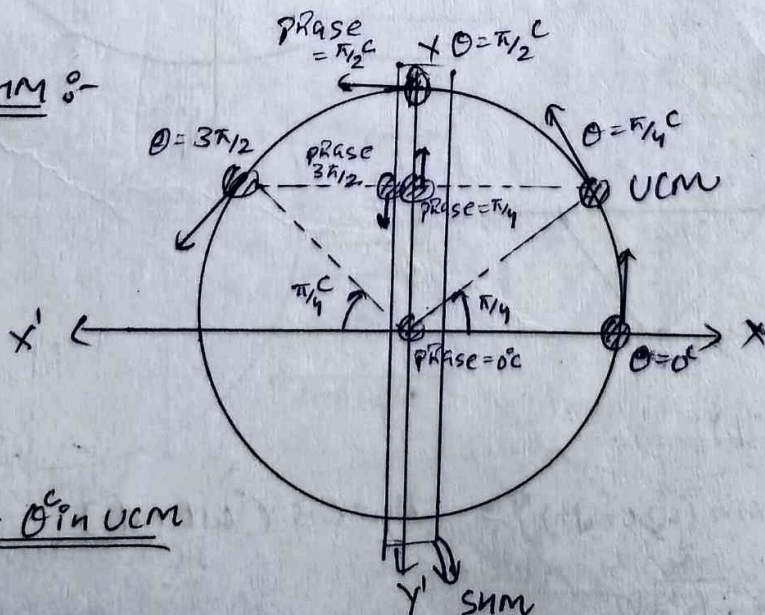 phase
= π/2 ᶜ
Y θ = π/2 ᶜ
HM :-
θ = 3π/2
phase
3π/2
θ = π/4 ᶜ
UCM
phase = π/4
π/4 ᶜ
π/4
X'
X
phase = 0ᶜ
θ = 0ᶜ
θᶜ in UCM
Y'
SHM